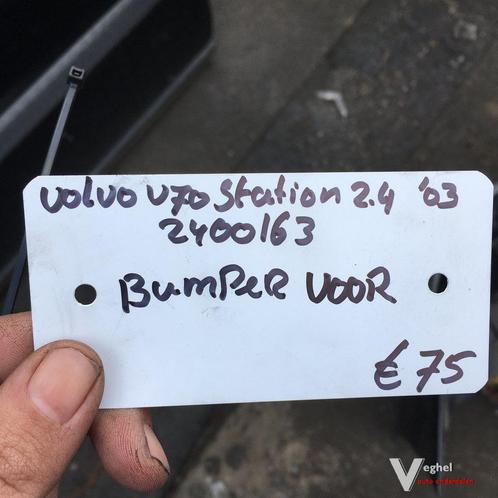 Volvo V70 Station 2.4 '03
2400163
Bumper voor
€ 75
Veghel
auto onderdelen